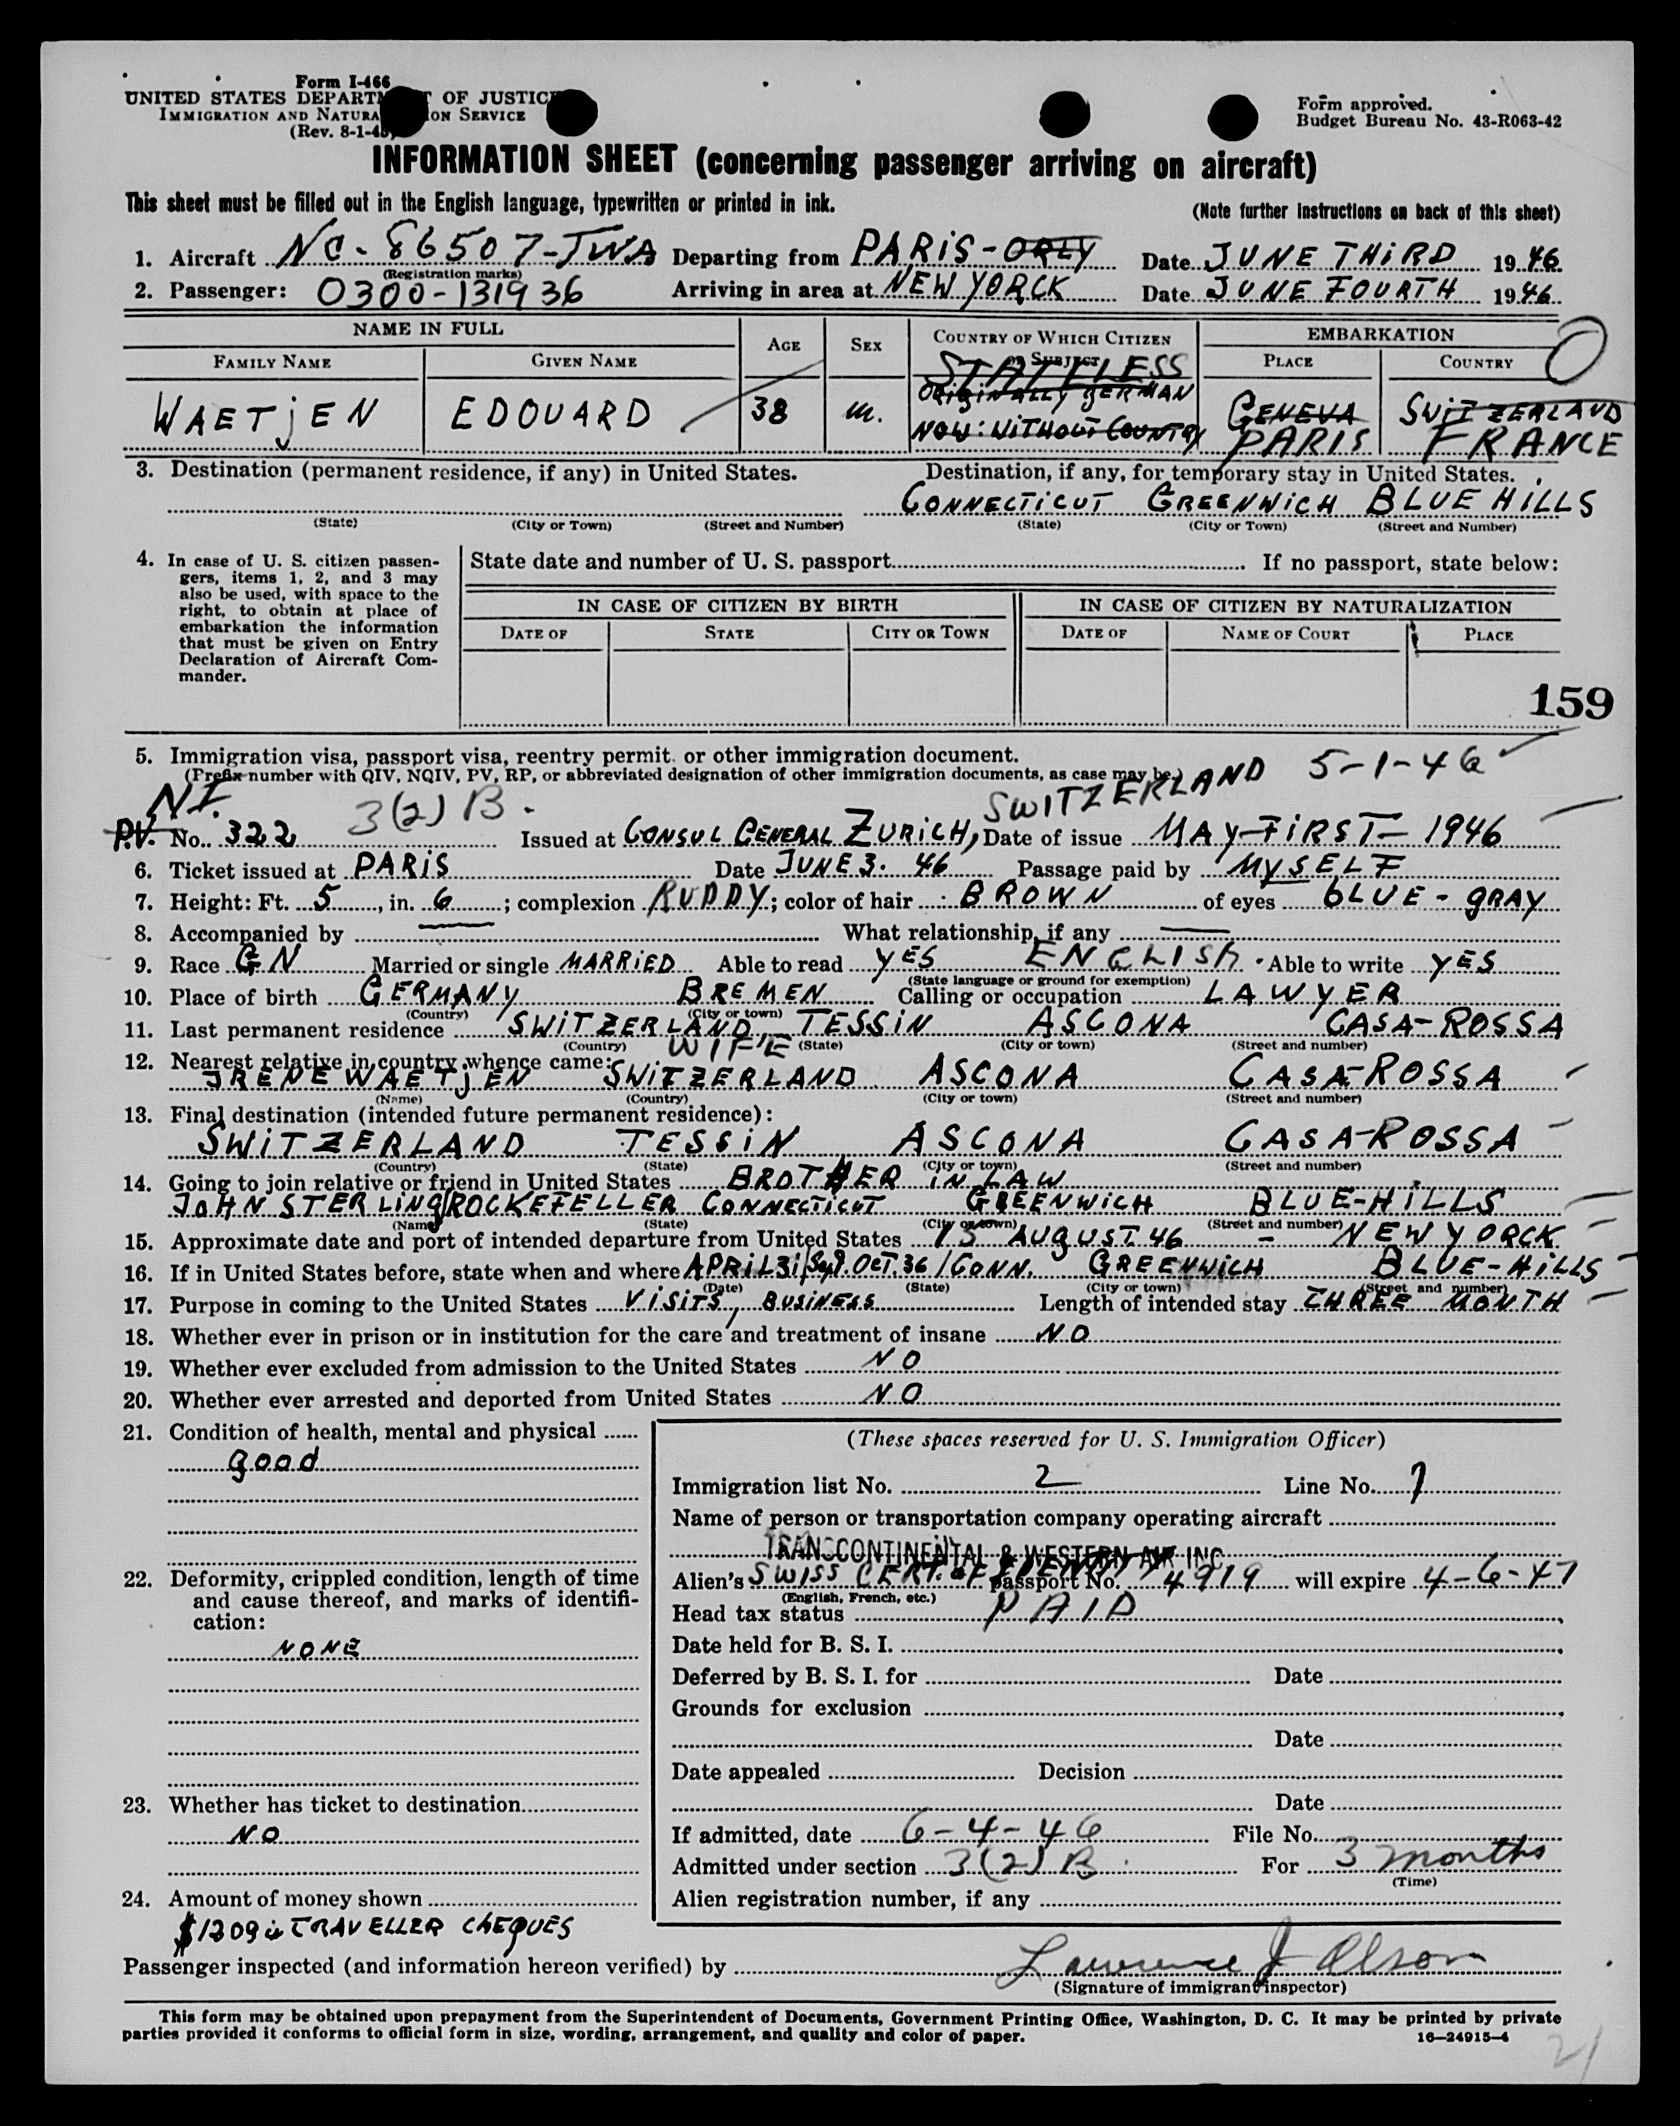 Form I-466
UNITED STATES DEPARTMENT OF JUSTICE
IMMIGRATION AND NATURALIZATION SERVICE
(Rev. 8-1-45)
Form approved.
Budget Bureau No. 43-R063-42
INFORMATION SHEET (concerning passenger arriving on aircraft)
This sheet must be filled out in the English language, typewritten or printed in ink.
(Note further instructions on back of this sheet)
1. Aircraft NC-86507-TWA Departing from PARIS-ORLY Date JUNE THIRD 1946
(Registration marks)
2. Passenger: 0300-131936 Arriving in area at NEW YORCK Date JUNE FOURTH 1946
NAME IN FULL AGE SEX COUNTRY OF WHICH CITIZEN OR SUBJECT EMBARKATION
FAMILY NAME GIVEN NAME PLACE COUNTRY
STATELESS
ORIGINALLY GERMAN
WAETJEN EDOUARD 38 m. NOW: WITHOUT COUNTRY GENEVA SWITZERLAND
PARIS FRANCE
3. Destination (permanent residence, if any) in United States. Destination, if any, for temporary stay in United States.
CONNECTICUT GREENWICH BLUE HILLS
(State) (City or Town) (Street and Number) (State) (City or Town) (Street and Number)
4. In case of U. S. citizen passengers, items 1, 2, and 3 may also be used, with space to the right, to obtain at place of embarkation the information that must be given on Entry Declaration of Aircraft Commander.
State date and number of U. S. passport If no passport, state below:
IN CASE OF CITIZEN BY BIRTH IN CASE OF CITIZEN BY NATURALIZATION
DATE OF STATE CITY OR TOWN DATE OF NAME OF COURT PLACE
159
5. Immigration visa, passport visa, reentry permit. or other immigration document.
(Prefix number with QIV, NQIV, PV, RP, or abbreviated designation of other immigration documents, as case may be.)
NI 3(2) B. SWITZERLAND 5-1-46
P.V. No. 322 Issued at CONSUL GENERAL ZURICH, Date of issue MAY-FIRST- 1946
6. Ticket issued at PARIS Date JUNE 3. 46 Passage paid by MYSELF
7. Height: Ft. 5, in. 6; complexion RUDDY; color of hair BROWN of eyes BLUE-GRAY
8. Accompanied by What relationship, if any
9. Race GN Married or single MARRIED Able to read YES ENGLISH. Able to write YES
(State language or ground for exemption)
10. Place of birth GERMANY BREMEN Calling or occupation LAWYER
(Country) (City or town)
11. Last permanent residence SWITZERLAND TESSIN ASCONA CASA-ROSSA
(Country) (State) (City or town) (Street and number)
WIFE
12. Nearest relative in country whence came:
IRENE WAETJEN SWITZERLAND ASCONA CASA-ROSSA
(Name) (Country) (City or town) (Street and number)
13. Final destination (intended future permanent residence):
SWITZERLAND TESSIN ASCONA CASA-ROSSA
(Country) (State) (City or town) (Street and number)
14. Going to join relative or friend in United States BROTHER IN LAW
JOHN STERLING ROCKEFELLER CONNECTICUT GREENWICH BLUE-HILLS
(Name) (State) (City or town) (Street and number)
15. Approximate date and port of intended departure from United States 15 AUGUST 46 - NEW YORCK
16. If in United States before, state when and where APRIL 31/Sept. OCT. 36/CONN. GREENWICH BLUE-HILLS
(Date) (State) (City or town) (Street and number)
17. Purpose in coming to the United States VISITS, BUSINESS Length of intended stay THREE MONTH
18. Whether ever in prison or in institution for the care and treatment of insane NO
19. Whether ever excluded from admission to the United States NO
20. Whether ever arrested and deported from United States NO
21. Condition of health, mental and physical
good
22. Deformity, crippled condition, length of time and cause thereof, and marks of identification:
NONE
23. Whether has ticket to destination
NO
24. Amount of money shown
$1209 in TRAVELLER CHEQUES
(These spaces reserved for U. S. Immigration Officer)
Immigration list No. 2 Line No. 7
Name of person or transportation company operating aircraft
TRANSCONTINENTAL & WESTERN AIR INC.
Alien's SWISS CERT. OF IDENTITY passport No. 4919 will expire 4-6-47
(English, French, etc.)
Head tax status PAID
Date held for B. S. I.
Deferred by B. S. I. for Date
Grounds for exclusion
Date
Date appealed Decision
Date
If admitted, date 6-4-46 File No.
Admitted under section 3(2) B. For 3 months
(Time)
Alien registration number, if any
Passenger inspected (and information hereon verified) by Lawrence J Olson
(Signature of immigrant inspector)
This form may be obtained upon prepayment from the Superintendent of Documents, Government Printing Office, Washington, D. C. It may be printed by private
parties provided it conforms to official form in size, wording, arrangement, and quality and color of paper. 16—24915-4
21